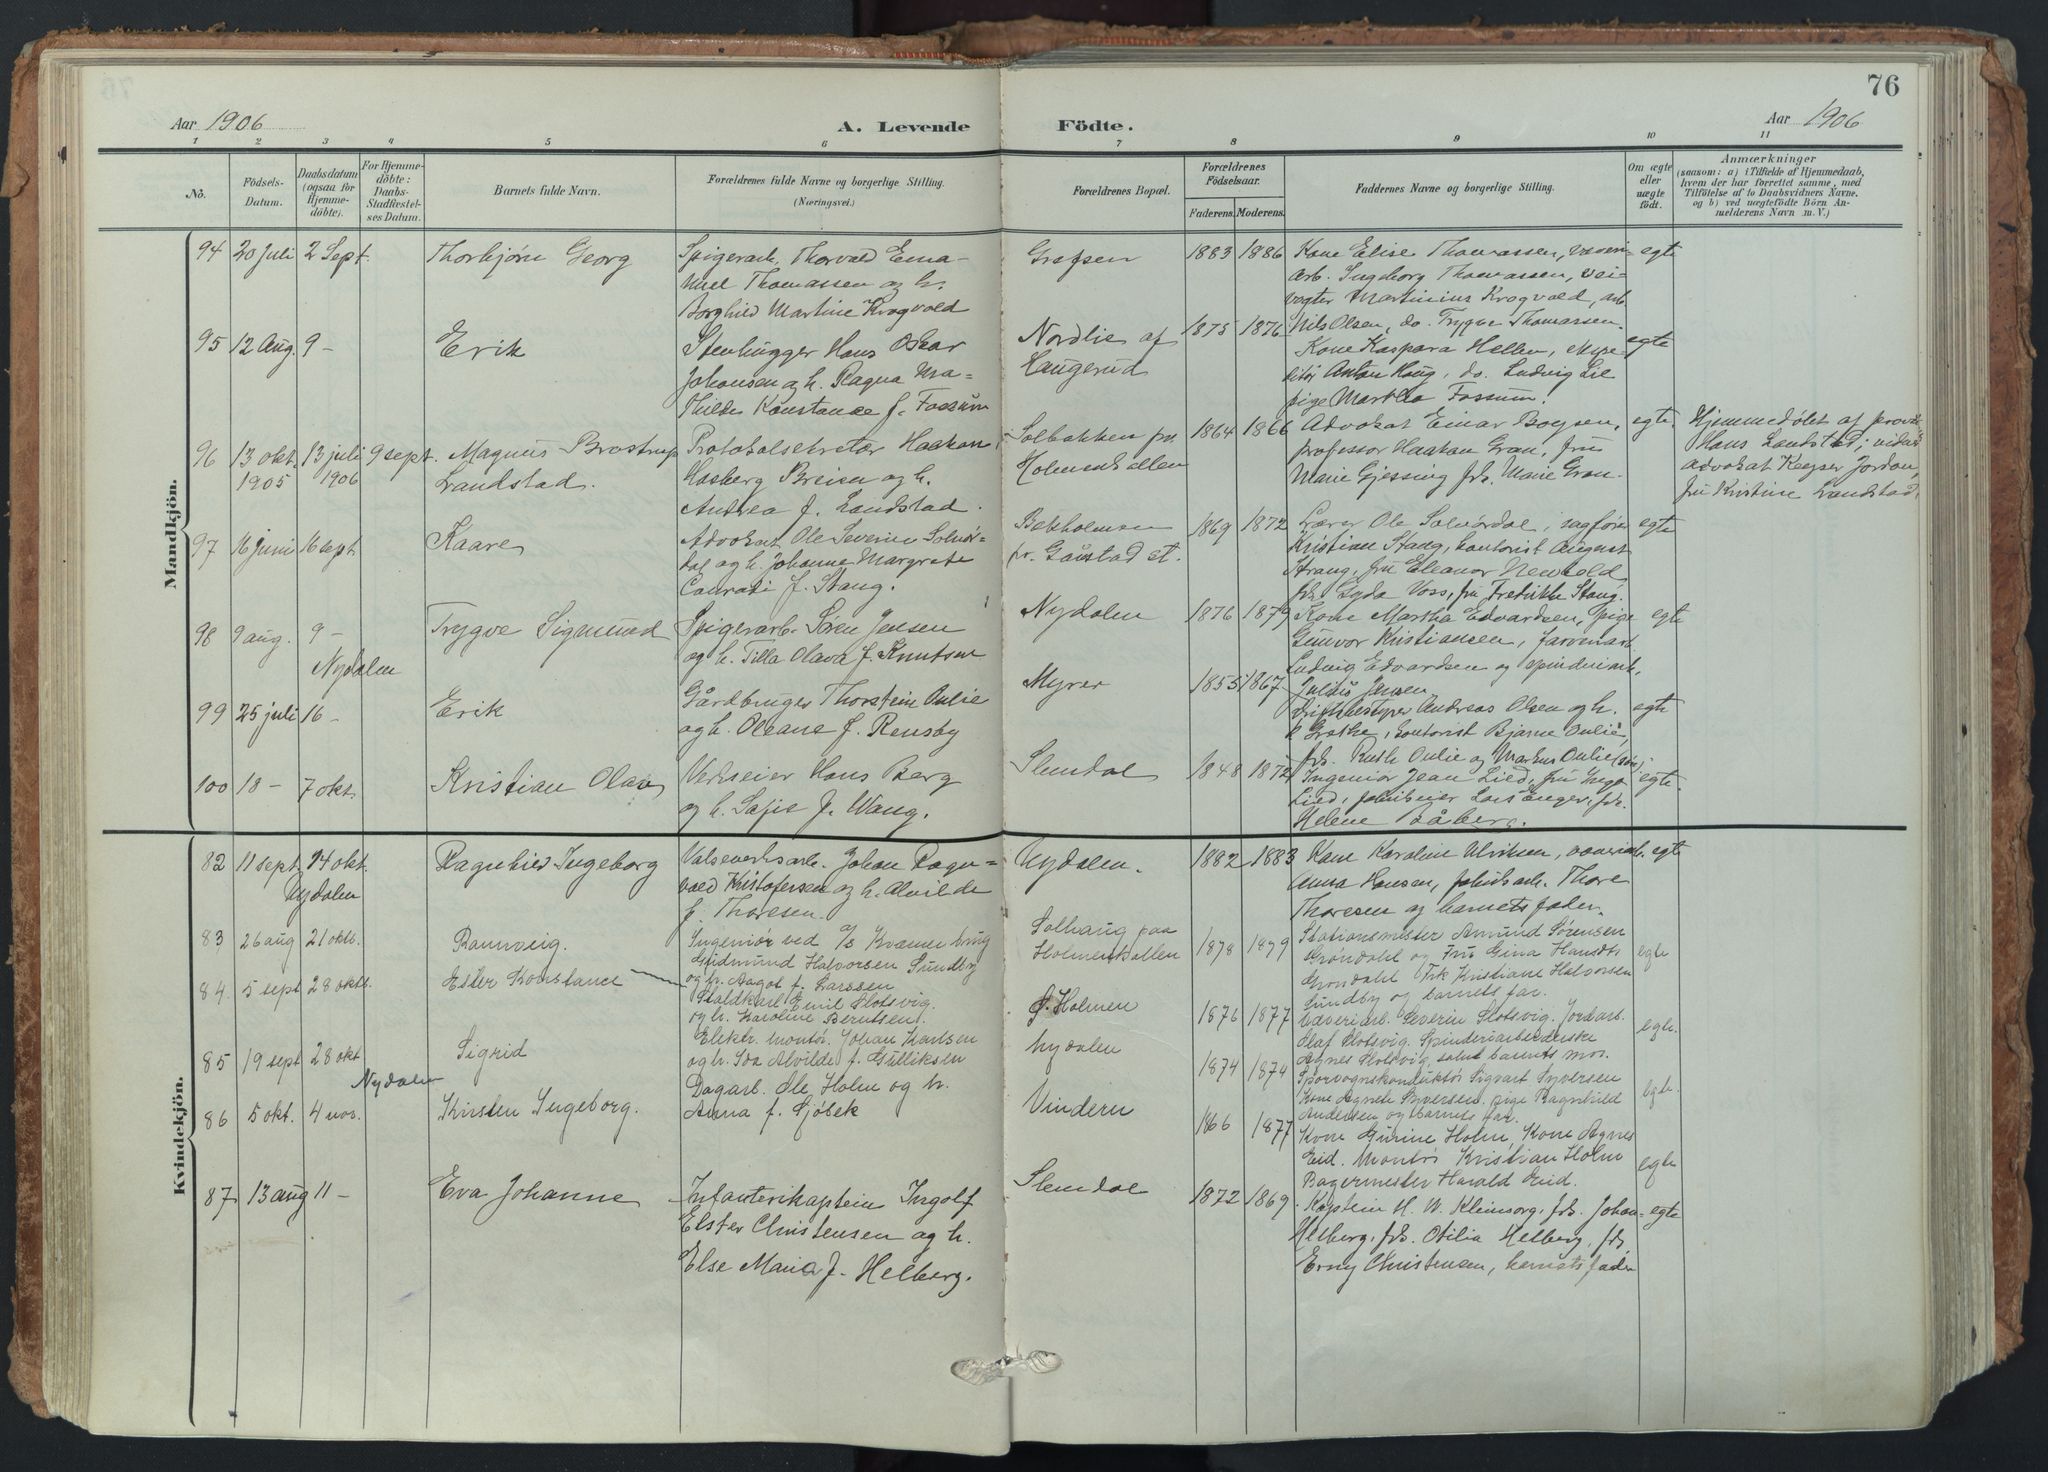 76
Aar 1906
A. Levende Födte.
Aar 1906
1 2 3 4 5 6 7 8 9 10 11
No.
Födsels-
Datum.
Daabsdatum
(ogsaa for
Hjemme-
döbte).
For Hjemme-
döbte:
Daabs-
Stadfæstel-
ses Datum.
Barnets fulde Navn.
Forældrenes fulde Navne og borgerlige Stilling.
(Næringsvei.)
Forældrenes Bopæl.
Forældrenes
Födselsaar.
Faderens. Moderens.
Faddernes Navne og borgerlige Stilling.
Om ægte
eller
uægte
født.
Anmærkninger
(saasom: a) i Tilfælde af Hjemmedaab,
hvem der har forrettet samme, med
Tilföielse af to Daabsvidners Navne.
og b) ved uægtefödte Börn An-
melderens Navn m. V.)
Mandkjön.
94 20 juli 2 Sept.
Thorbjørn Georg
Spigerarb. Thorvald Ema-
nuel Thomassen og h.
Borghild Martine Krogvold
Grefsen
1883 1886
Kone Elise Thomassen, væveri-
arb. Ingeborg Thomassen, vei-
vogter Martinius Krogvold, arb.
Nils Olsen, do. Trygve Thomassen.
egte
95 12 Aug. 9 –
Erik
Stenhugger Hans Oskar
Johansen og h. Ragna Ma-
thilde Konstanse f. Fossum
Nordlie af
Haugerud
1875 1876
Kone Kaspara Hellen, expe-
ditør Anton Haug, do. Ludvig Lie
pige Martha Fossum.
egte
96 13 okt. 1905 13 juli 1906 9 sept.
Magnus Brostrup
Landstad.
Protokolsekretær Haakon
Hasberg Breien og h.
Andrea f. Landstad.
Solbakken pr.
Holmenkollen
1864 1866
Advokat Einar Boysen,
professor Haakan Gran, fru
Marie Gjessing frk. Marie Gran.
egte.
Hjemmedøbt af
Hans Landstad;
advokat Keyser Jordan,
fru Kristine Landstad.
97 16 juni 16 sept
Kaare
Advokat Ole Severin Solnør-
dal og h. Johanne Margrete
Conradi f. Stang.
Bekholmen
pr. Gaustad st.
1869 1872
Lærer Ole Solnørdal, sagfører
Kristian Stang, kontorist August
Strang, fru Eleanor Newbold
frk. Gyda Voss, fru Fredrikke Stang.
egte
98 9 aug. 9 –
Nydalen
Trygve Sigmund
Spigerarb. Søren Jensen
og h. Tilla Olava f. Knutsen
Nydalen
1876 1879
Kone Martha Edvardsen, pige
Gunvor Kristiansen, farveriarb.
Ludvig Edvardsen og spinderiarb.
Julius Jensen
egte
99 25 juli 16 –
Erik
Gårdbruger Thorstein Aulie
og h. Oleane f. Rensby
Myrer
1855 1867
Andreas Olsen og h.
Grethe, kontorist Bjarne Aulie,
frk. Ruth Aulie og Markus Aulie
egte
100 18 – 7 okt.
Kristian Olav
Verkseier Hans Berg
og h. Sofie f. Wang.
Slemdal
1848 1872
Ingeniør Jean Lied, fru Inga
Lied, fabrikeier Lars Enger, frk.
Helene Låberg.
egte.
Kvindekjön.
82 11 sept. 14 okt.
Nydalen
Ragnhild Ingeborg
Valseverksarb. Johan Ragn-
vald Kristofersen og h. Alvilde
f. Thoresen.
Nydalen.
1882 1883
Kone Karoline Ulriksen, væveriarb.
Anna Hansen, fabriksarb. Thore
Thoresen og barnets fader.
egte
83 26 aug 21 okt.
Rannveig.
Ingeniør ved A/s Kværner brug
Gudmund Halvorsen Sundby
og h. Aagot f. Larssen
Solhaug paa
Holmenkollen
1878 1879
Stationsmester Amund Sørensen
Grøndahl og Fru Gina Hansdt.
Grøndahl Frk Kristiane Halvorsen
Sundby og barnets far.
egte
84. 5 sept 28 oktb.
Ester Konstance
Staldkarl Emil Slotsvig.
og h. Karoline Berntsen.
Ø. Holmen
1876 1877
Væveriarb. Severin Slotsvig. Jordarb.
Olaf Slotsvig. Spinderiarbeiderske
Agnes Slotsvig samt barnets mor.
egte.
85 19 sept 28 okt
Nydalen
Sigrid
Elektr. montør. Johan Karlsen
og h. Ida Alvilde f. Gulliksen
Nydalen
1874 1874
Sporvognskonduktør Sigvart Syversen
Kone Agnete Syversen. pige Ragnhild
Andersen og barnets far.
egte.
86 5 okt. 4 nov.
Kirsten Ingeborg.
Dagarb. Ole Holm og h.
Anna f. Sjøbek
Vindern
1866 1877
Kone Gurine Holm, Kone Agnes
Eid. Montør Kristian Holm
Bagermester Harald Eid.
egte
87 13 aug 11 –
Eva Johanne
Infanterikaptein Ingolf
Elster Christensen og h.
Else Marie f. Helberg.
Slemdal
1872 1869
Kaptein H. W. Kleinsorg, frk. Johan-
Helberg, frk. Otilia Helberg, frk.
Erny Christensen, barnets fader
egte